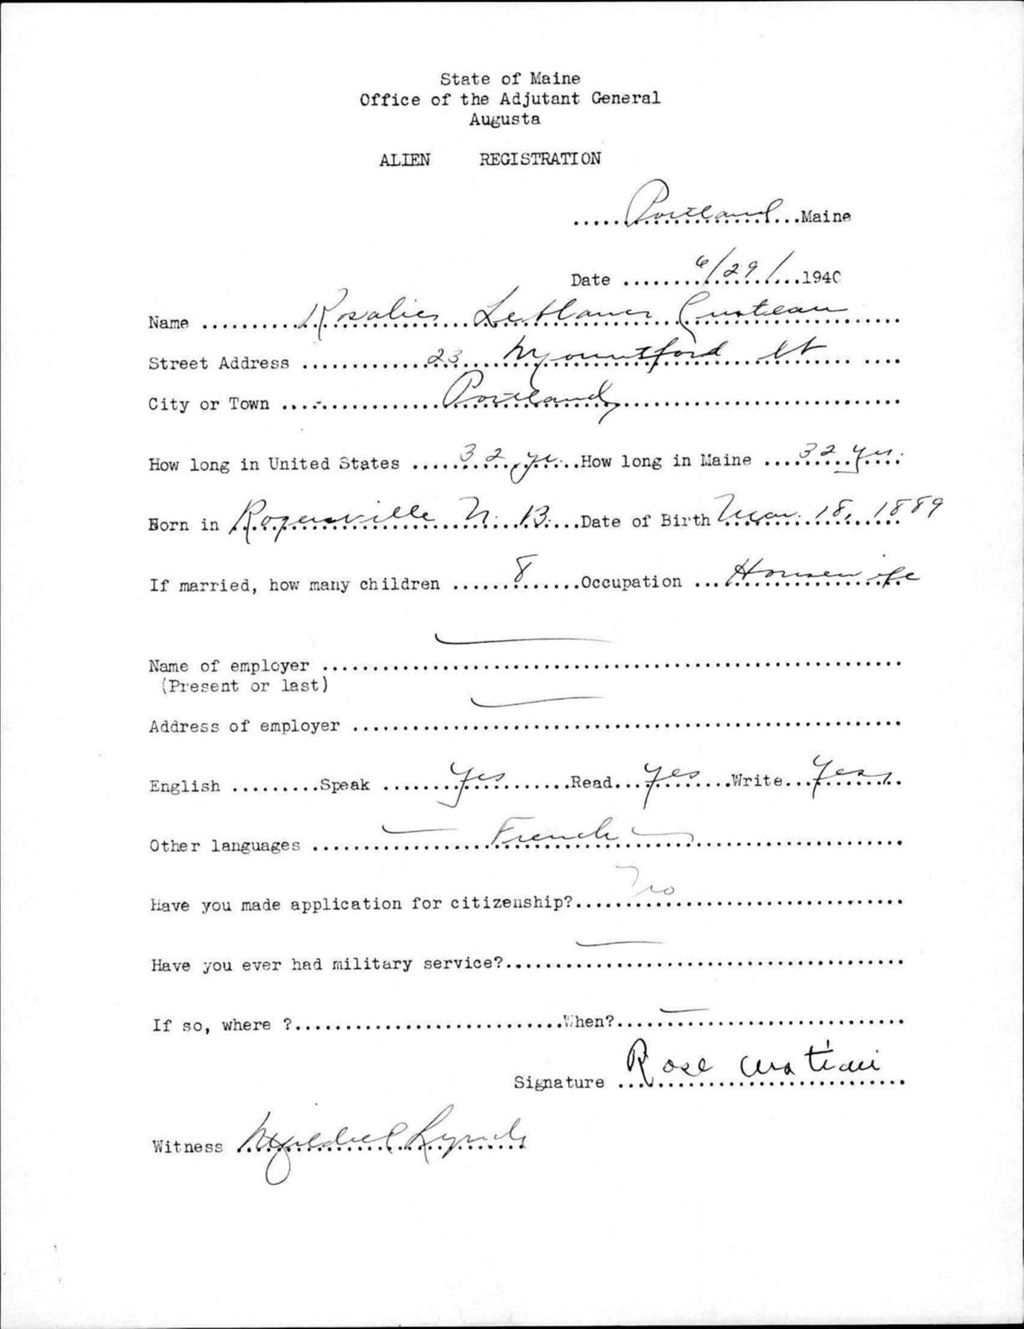 State of Maine
Office of the Adjutant General
Augusta
ALIEN REGISTRATION
.....Portland...Maine
Date ........6/29/....1940
Name ..........Rosalie...LeBlanc
Street Address ..............23....Mountford St ....
City or Town ..................Portland............................
How long in United States .....32 yr...How long in Maine ....32 yrs.
Born in Rogersville N. B....Date of Birth Mar. 18, 1889
If married, how many children ......8......Occupation ...Housewife
Name of employer ............................................................
(Present or last)
Address of employer .........................................................
English .........Speak ........yes........Read...yes...Write...Yes..
Other languages ....................French..............................
Have you made application for citizenship?......No.........................
Have you ever had military service?.........................................
If so, where ?............................When?..............................
Signature ...Rose
Witness Mildred Lynch